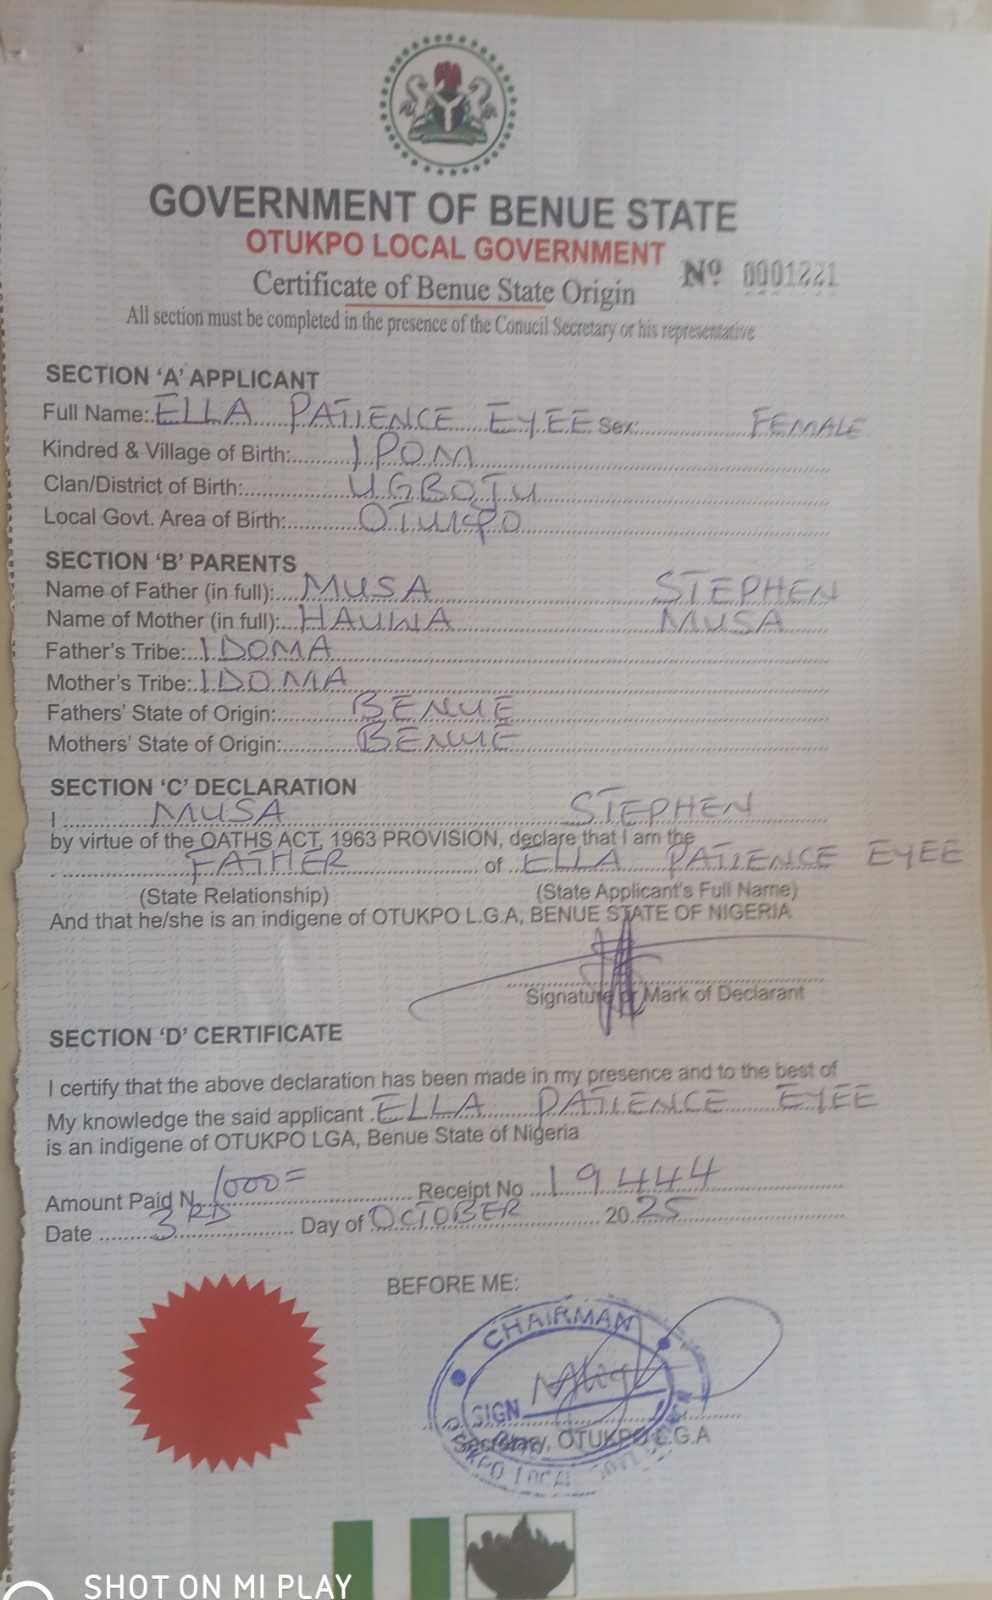 GOVERNMENT OF BENUE STATE
OTUKPO LOCAL GOVERNMENT
Certificate of Benue State Origin
Nº 0001221
All section must be completed in the presence of the Conucil Secretary or his representative
SECTION ‘A’ APPLICANT
Full Name: ELLA PATIENCE EYEE Sex: FEMALE
Kindred & Village of Birth: IPOM
Clan/District of Birth: UGBOJU
Local Govt. Area of Birth: OTUKPO
SECTION ‘B’ PARENTS
Name of Father (in full): MUSA STEPHEN
Name of Mother (in full): HAUWA MUSA
Father's Tribe: IDOMA
Mother's Tribe: IDOMA
Fathers' State of Origin: BENUE
Mothers' State of Origin: BENUE
SECTION ‘C’ DECLARATION
I MUSA STEPHEN
by virtue of the OATHS ACT, 1963 PROVISION, declare that I am the
FATHER of ELLA PATIENCE EYEE
(State Relationship) (State Applicant's Full Name)
And that he/she is an indigene of OTUKPO L.G.A, BENUE STATE OF NIGERIA
Signature or Mark of Declarant
SECTION ‘D’ CERTIFICATE
I certify that the above declaration has been made in my presence and to the best of
My knowledge the said applicant ELLA PATIENCE EYEE
is an indigene of OTUKPO LGA, Benue State of Nigeria
Amount Paid N 1000= Receipt No 19444
Date 3RD Day of OCTOBER 2025
BEFORE ME:
CHAIRMAN
SIGN
Secretary, OTUKPO L.G.A
OTUKPO LOCAL GOVT
SHOT ON MI PLAY